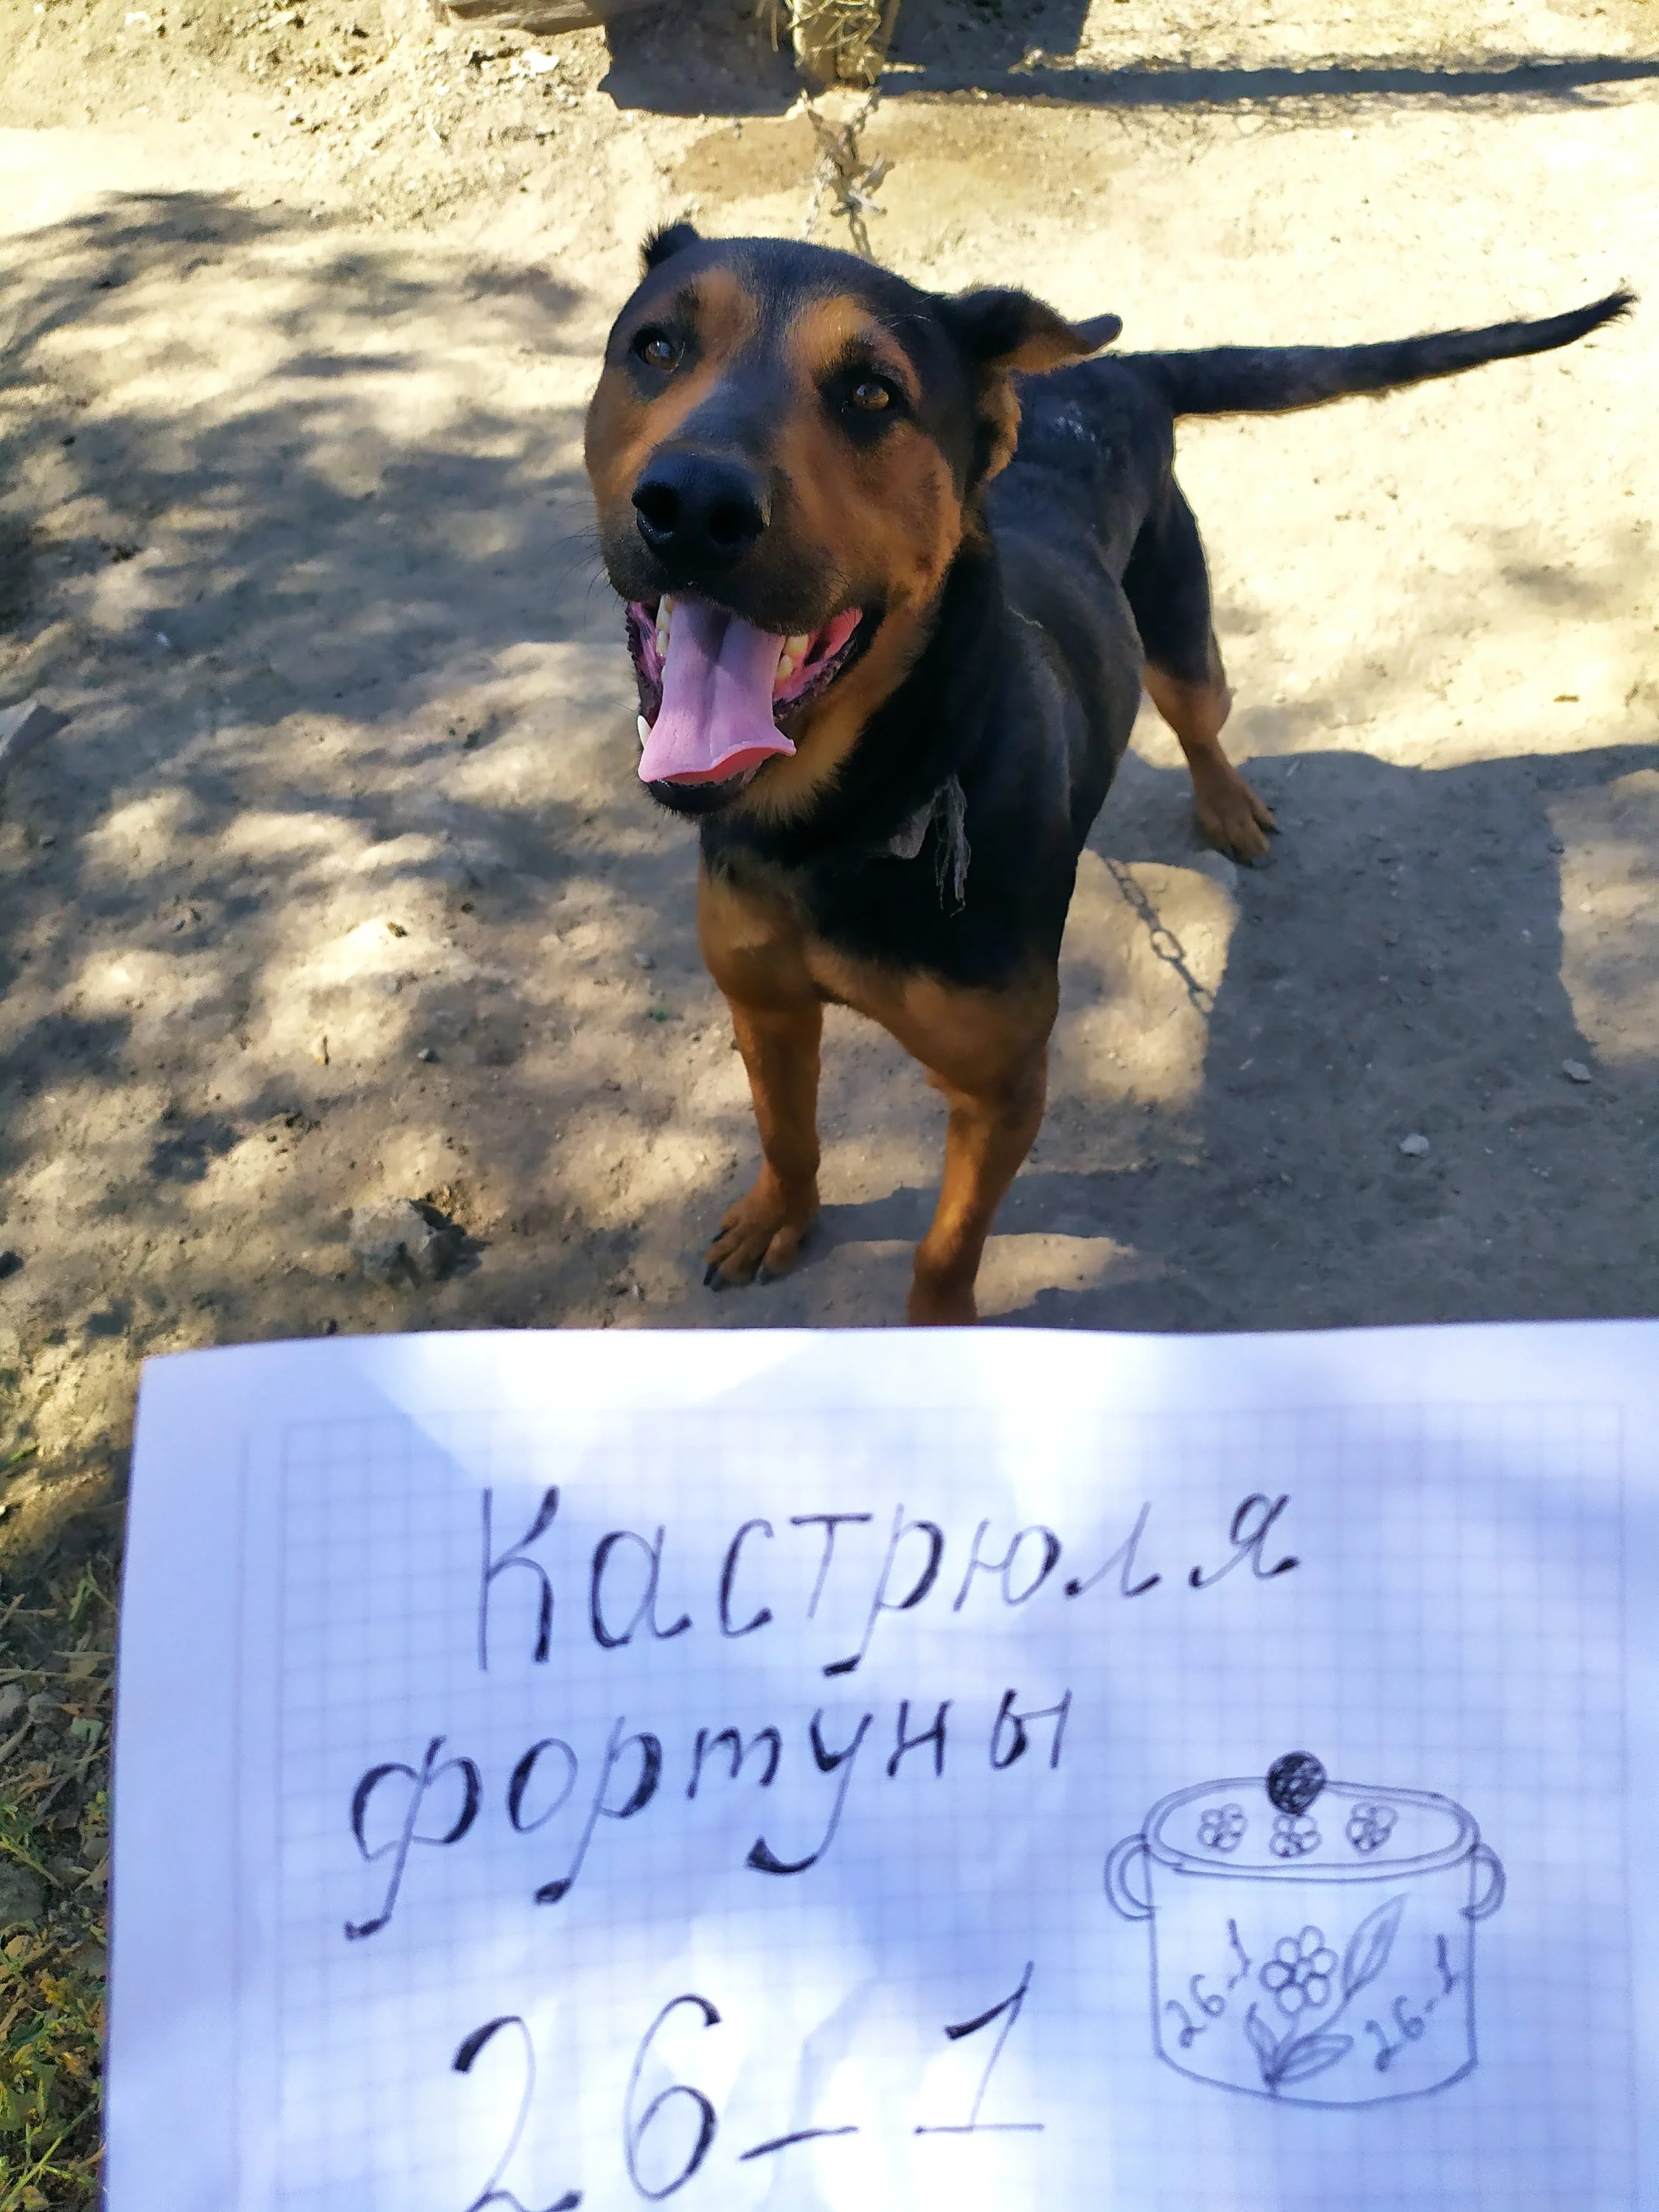 Кастрюля
фортуны
26-1
26-1
26-1